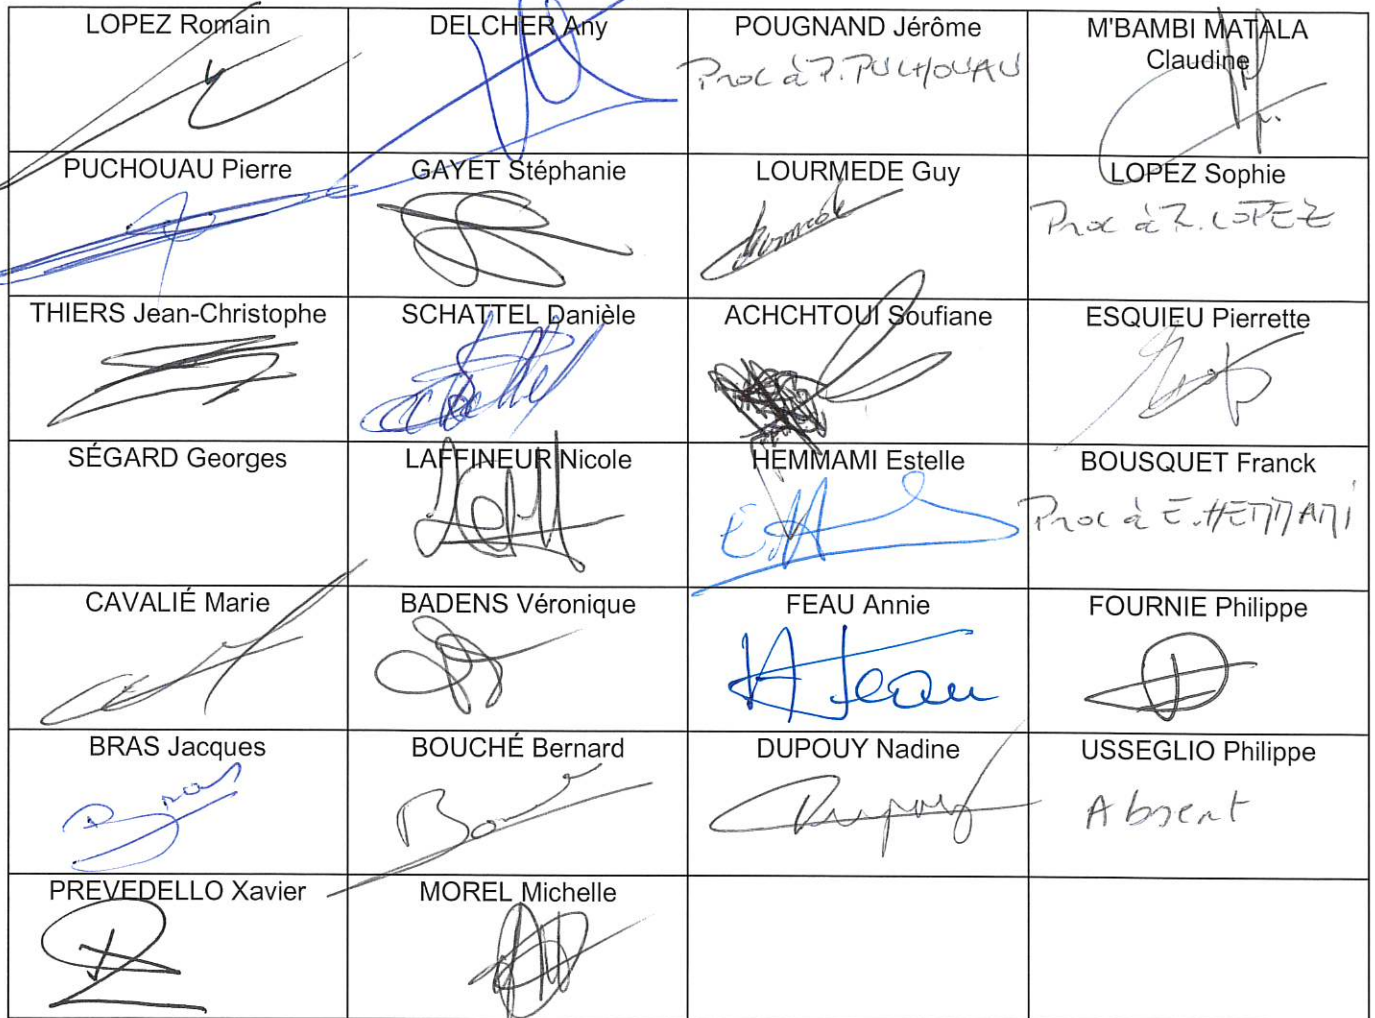 LOPEZ Romain
DELCHER Any
POUGNAND Jérôme
Proc à P. PUCHOUAU
M'BAMBI MATALA
Claudine
PUCHOUAU Pierre
GAYET Stéphanie
LOURMEDE Guy
LOPEZ Sophie
Proc à R. LOPEZ
THIERS Jean-Christophe
SCHATTEL Danièle
ACHCHTOUI Soufiane
ESQUIEU Pierrette
SÉGARD Georges
LAFFINEUR Nicole
HEMMAMI Estelle
BOUSQUET Franck
Proc à E. HEMMAMI
CAVALIÉ Marie
BADENS Véronique
FEAU Annie
A Feau
FOURNIE Philippe
BRAS Jacques
BOUCHÉ Bernard
DUPOUY Nadine
Dupouy
USSEGLIO Philippe
Absent
PREVEDELLO Xavier
MOREL Michelle